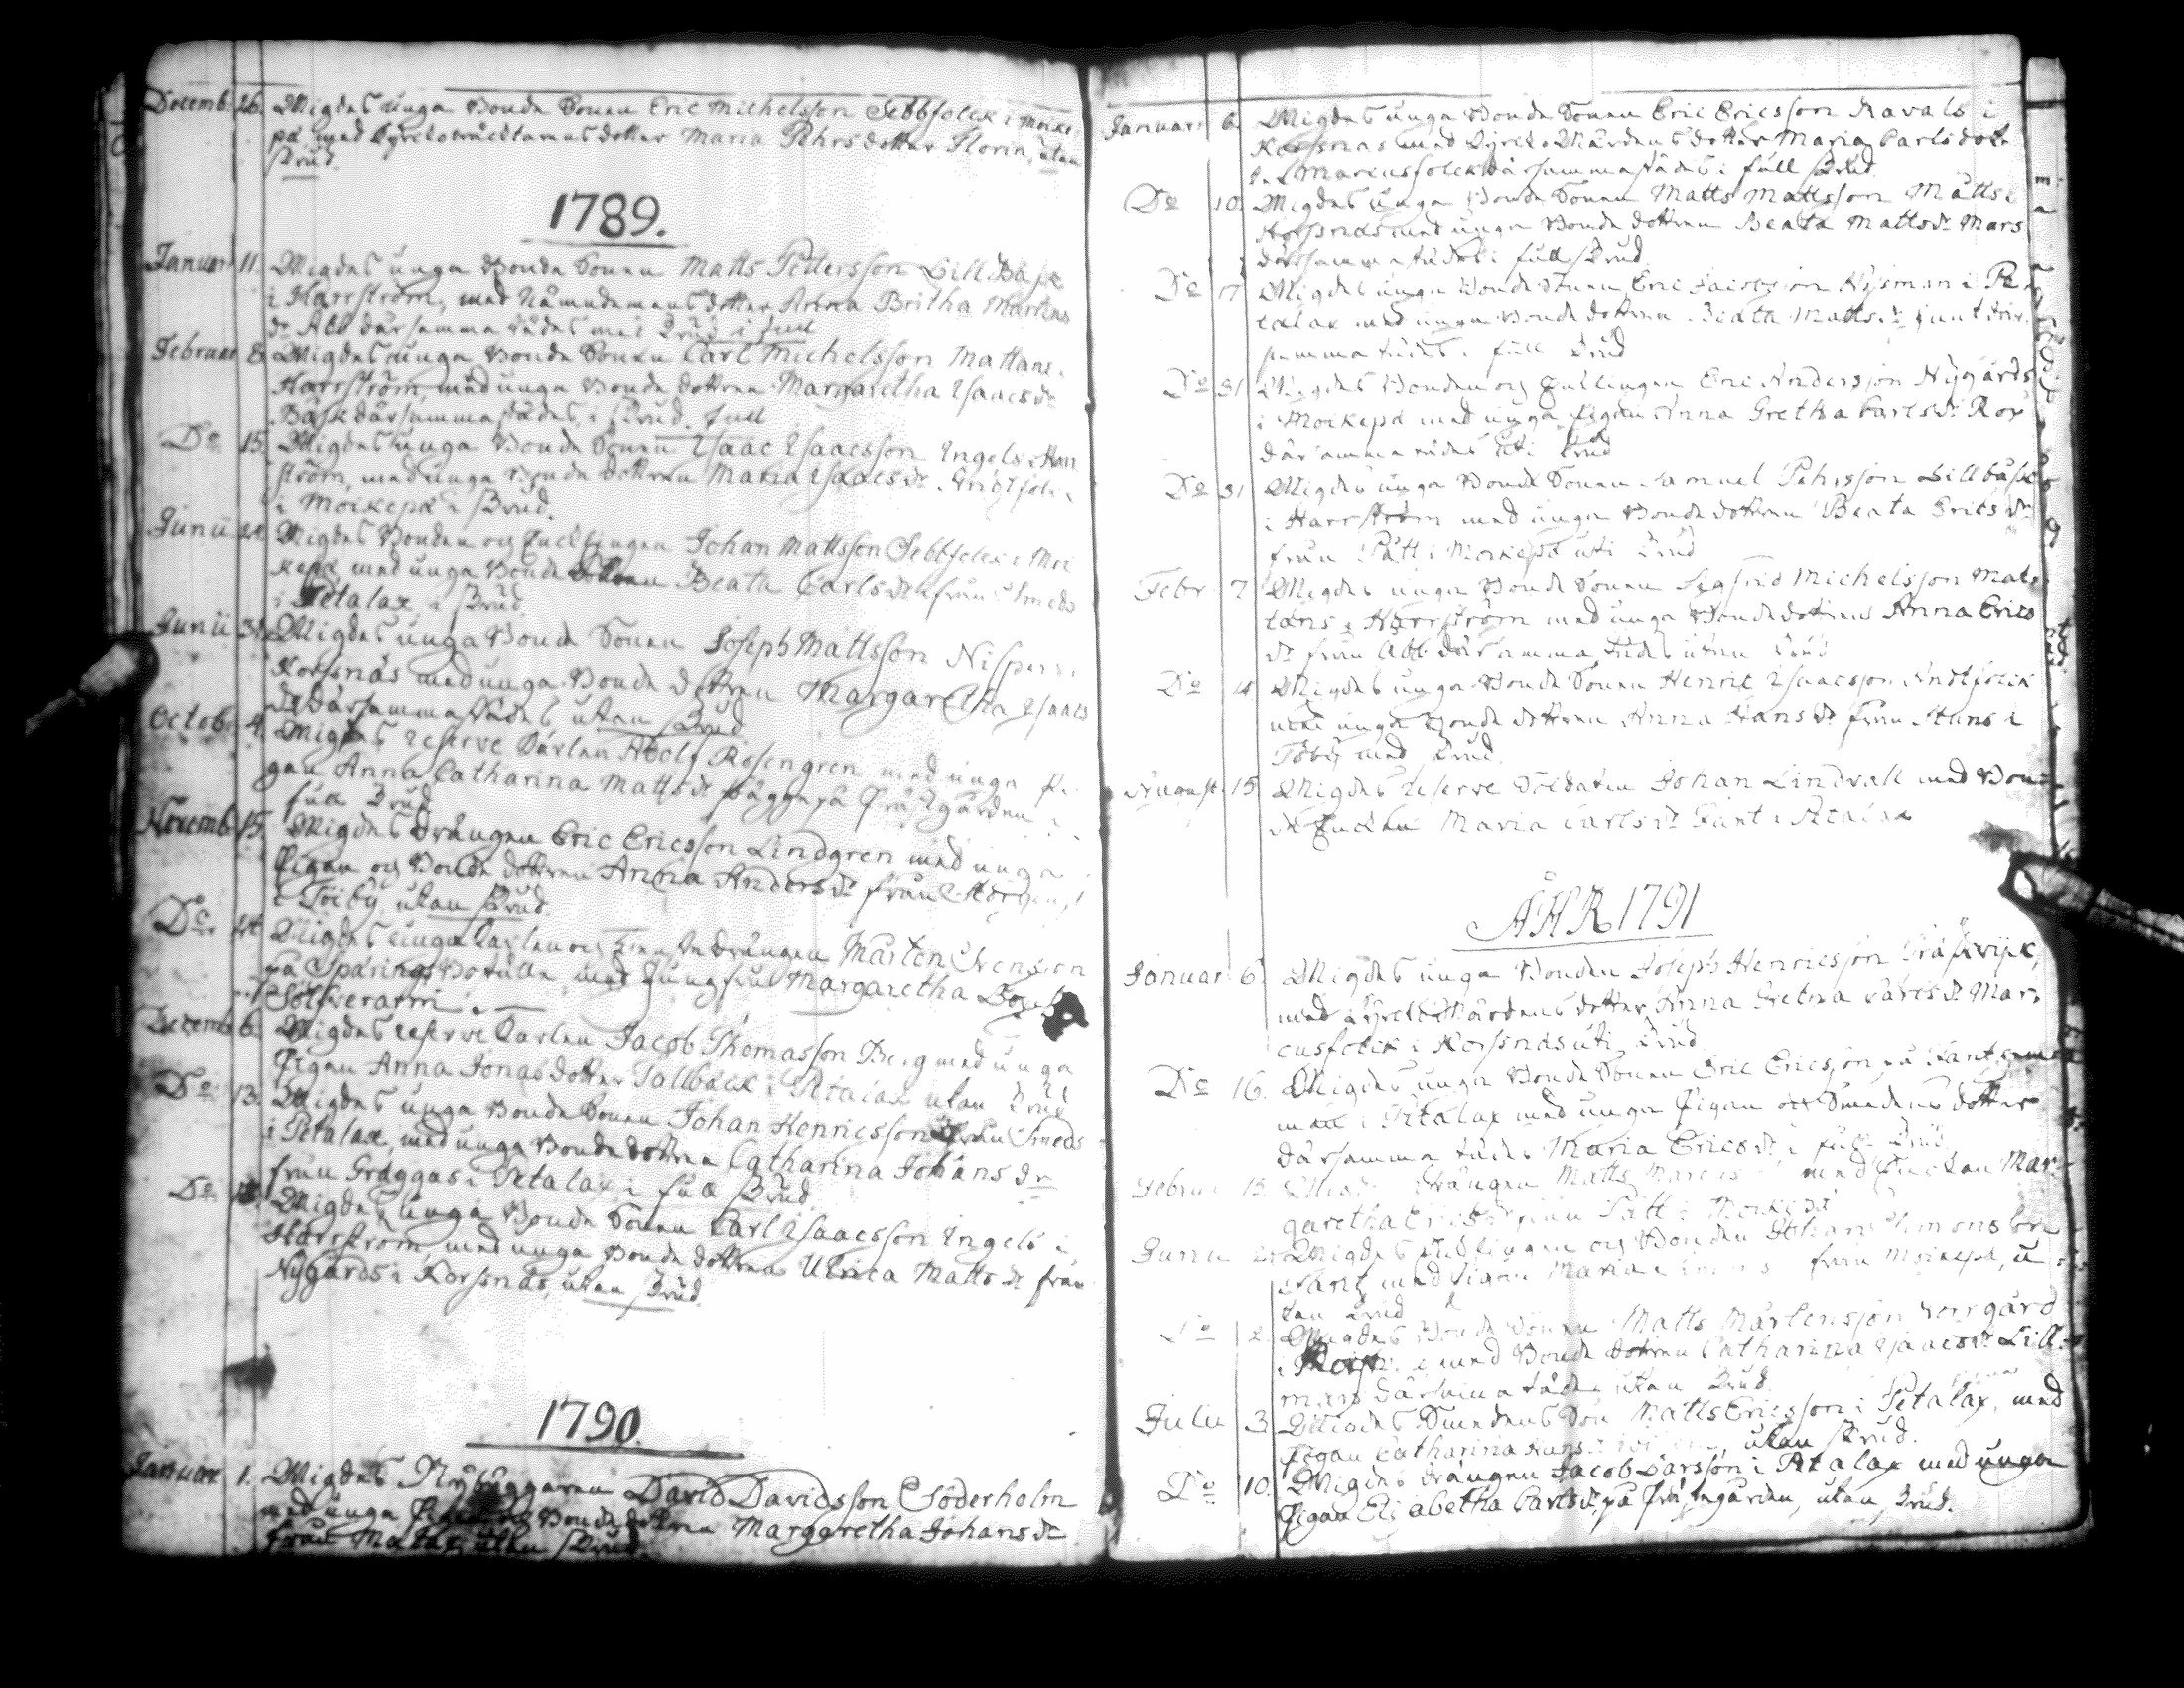 Decemb. 26. Wigdes unga Bonde Sonen Eric Michelsson Sebbfolck i Moike-
på med Kyrckoväcktarens dotter Maria Pehrs dotter Florin, utan
Brud.
1789.
Januar 11. Wigdes unga Bonde Sonen Matts Pettersson Lillbåsk
i Harrström, med Nämndemans dotter Anna Britha Mårtens
dr Abb därsammastädes med Brud i full
Februar 8. Wigdes unga Bonde Sonen Carl Michelsson Mattans i
Harrström, med unga Bonde dottren Margaretha Isaacs dr
Båsk därsammastädes, i Brud. full
Do 15. Wigdes unga Bonde Sonen Isaac Isaacsson Ingels i Harr
ström, med unga Bonde dottren Maria Isaacs dr
i Moikepä i Brud.
Junii 24. Wigdes Bonden och Encklingen Johan Mattsson Sebbfolck i Moi
kepä med unga Bonde dottren Beata Carls dr från Smeds
i Petalax, i Brud.
Junii Wigdes unga Bonde Sonen Joseph Mattsson Nissper i
Korsnäs med unga Bonde dottren Margaretha Isaacs
dr därsammastädes utan Brud
Octob. 4. Wigdes reserve Karlen Adolf Rosengren med unga Pi-
gan Anna Catharina Matts dr Hägg på Prästgården i
full Brud
Novemb. 15. Wigdes Drängen Eric Ericsson Lindgren med unga
Pigan och Bonde dottren Anna Anders dr från
i Töiby, utan Brud.
Do Wigdes unga Karlen och Drängen Mårten Svensson
på Sparings Botälle, med Jungfru Margaretha
Solfverarm
Decemb 6. Wigdes reserve Karlen Jacob Thomasson Berg med unga
Pigan Anna Jonas dotter Tallbäck i Petalax utan Brud
Do 13. Wigdes unga Bonde Sonen Johan Henricsson från Smeds
i Petalax, med unga Bonde dottren Catharina Johans dr
från Gräggas i Petalax i full Brud
Do Wigdes unga Bonde Sonen Carl Isaacsson Ingels i
Harrström, med unga Bonde dottren Ulrica Matts dr från
Nygårds i Korsnäs, utan Brud.
1790.
Januar 1. Wigdes Nybyggaren David Davidsson Söderholm
med unga Bonde dottren Margaretha Johans dr
från Malax, utan Brud.
Januar 6. Wigdes unga Bonde Sonen Eric Ericsson Ravals i
Korsnäs med Kyrcko Wärdens dotter Maria Carls dott
Marcusfolck därsammastädes i full Brud.
Do 10. Wigdes unga Bonde Sonen Matts Mattsson Mätts i
Korsnäs med unga Bonde dottren Beata Matts dr Mars
därsammastädes i full Brud.
Do 17 Wigdes unga Bonde Sonen Eric Jacobsson Nysman i Pe
talax med unga Bonde dottren Beata Matts dr där
sammastädes i full Brud
Do 31 Wigdes Bonden och Encklingen Eric Andersson Nygårds
i Moikepä med unga Pigan Anna Gretha Carls dr Röy
därsammastädes uti Brud
Do 31 Wigdes unga Bonde Sonen Samuel Pehrsson Lillbåsk
i Harrström med unga Bonde dottren Beata Erics dr
från Pått i Moikepä uti Brud
Febr 7 Wigdes unga Bonde Sonen Sigfrid Michelsson Mat
tans i Harrström med unga Bonde dottren Anna Erics
dr från Abb därsammastädes utan Brud
Do 14 Wigdes unga Bonde Sonen Henric Isaacsson
med unga Bonde dottren Anna Hans dr från Huns i
Töby med Brud.
August. 15 Wigdes reserve Soldaten Johan Lindvall med Bon-
de Enckan Maria Carls dr i Petalax
ÅHR 1791
Januar 6. Wigdes unga Bonden Joseph Henricsson Träskvijk,
med Kyrcko Wärdens dotter Anna Gretha Carls dr Mar-
cusfolck i Korsnäs uti Brud
Do 16. Wigdes unga Bonde Sonen Eric Ericsson på
i Petalax med unga Pigan och Smedens dotter
därsammastädes Maria Erics dr i full Brud
Februar 13. Drängen Matts med Enckan Mar-
garetha från Pått i Moikepä
Junii Wigdes Encklingen och Bonden Johan Simonsson
med Pigan Maria från Moikepä, u
tan Brud
Do 2. Wigdes Bonde Sonen Matts Mårtensson Norrgård
i med Bonde dottren Catharina Isaacs dr Lill
mars därsammastädes utan Brud.
Julii 3. Wigdes Smedens Son Matts Ericsson i Petalax, med
Pigan Catharina Hans utan Brud.
Do 10. Wigdes Drängen Jacob Larsson i Petalax med unga
Pigan Elisabetha Carls dr på Prästgården, utan Brud.